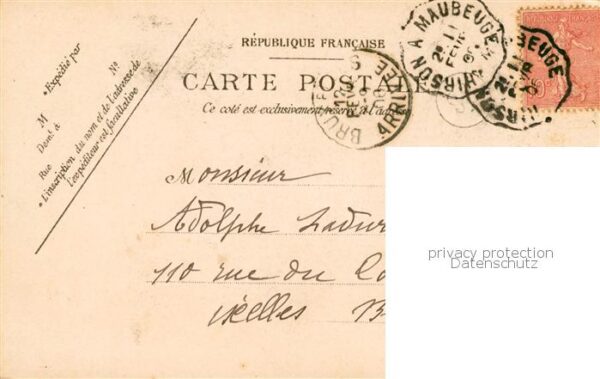 RÉPUBLIQUE FRANÇAISE
CARTE POSTALE
Ce côté est exclusivement réservé à l'adresse
Expédié par
M
Demt à
Rue
No
L'inscription du nom et de l'adresse de
l'expéditeur est facultative
HIRSON A MAUBEUGE
ARRIVEE
BEUGE
HIRSON
Monsieur
Adolphe Ladu
110 rue du
Ixelles B
privacy protection
Datenschutz